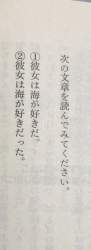 次の文章を読んでみてください。
①彼女は海が好きだ。
②彼女は海が好きだった。